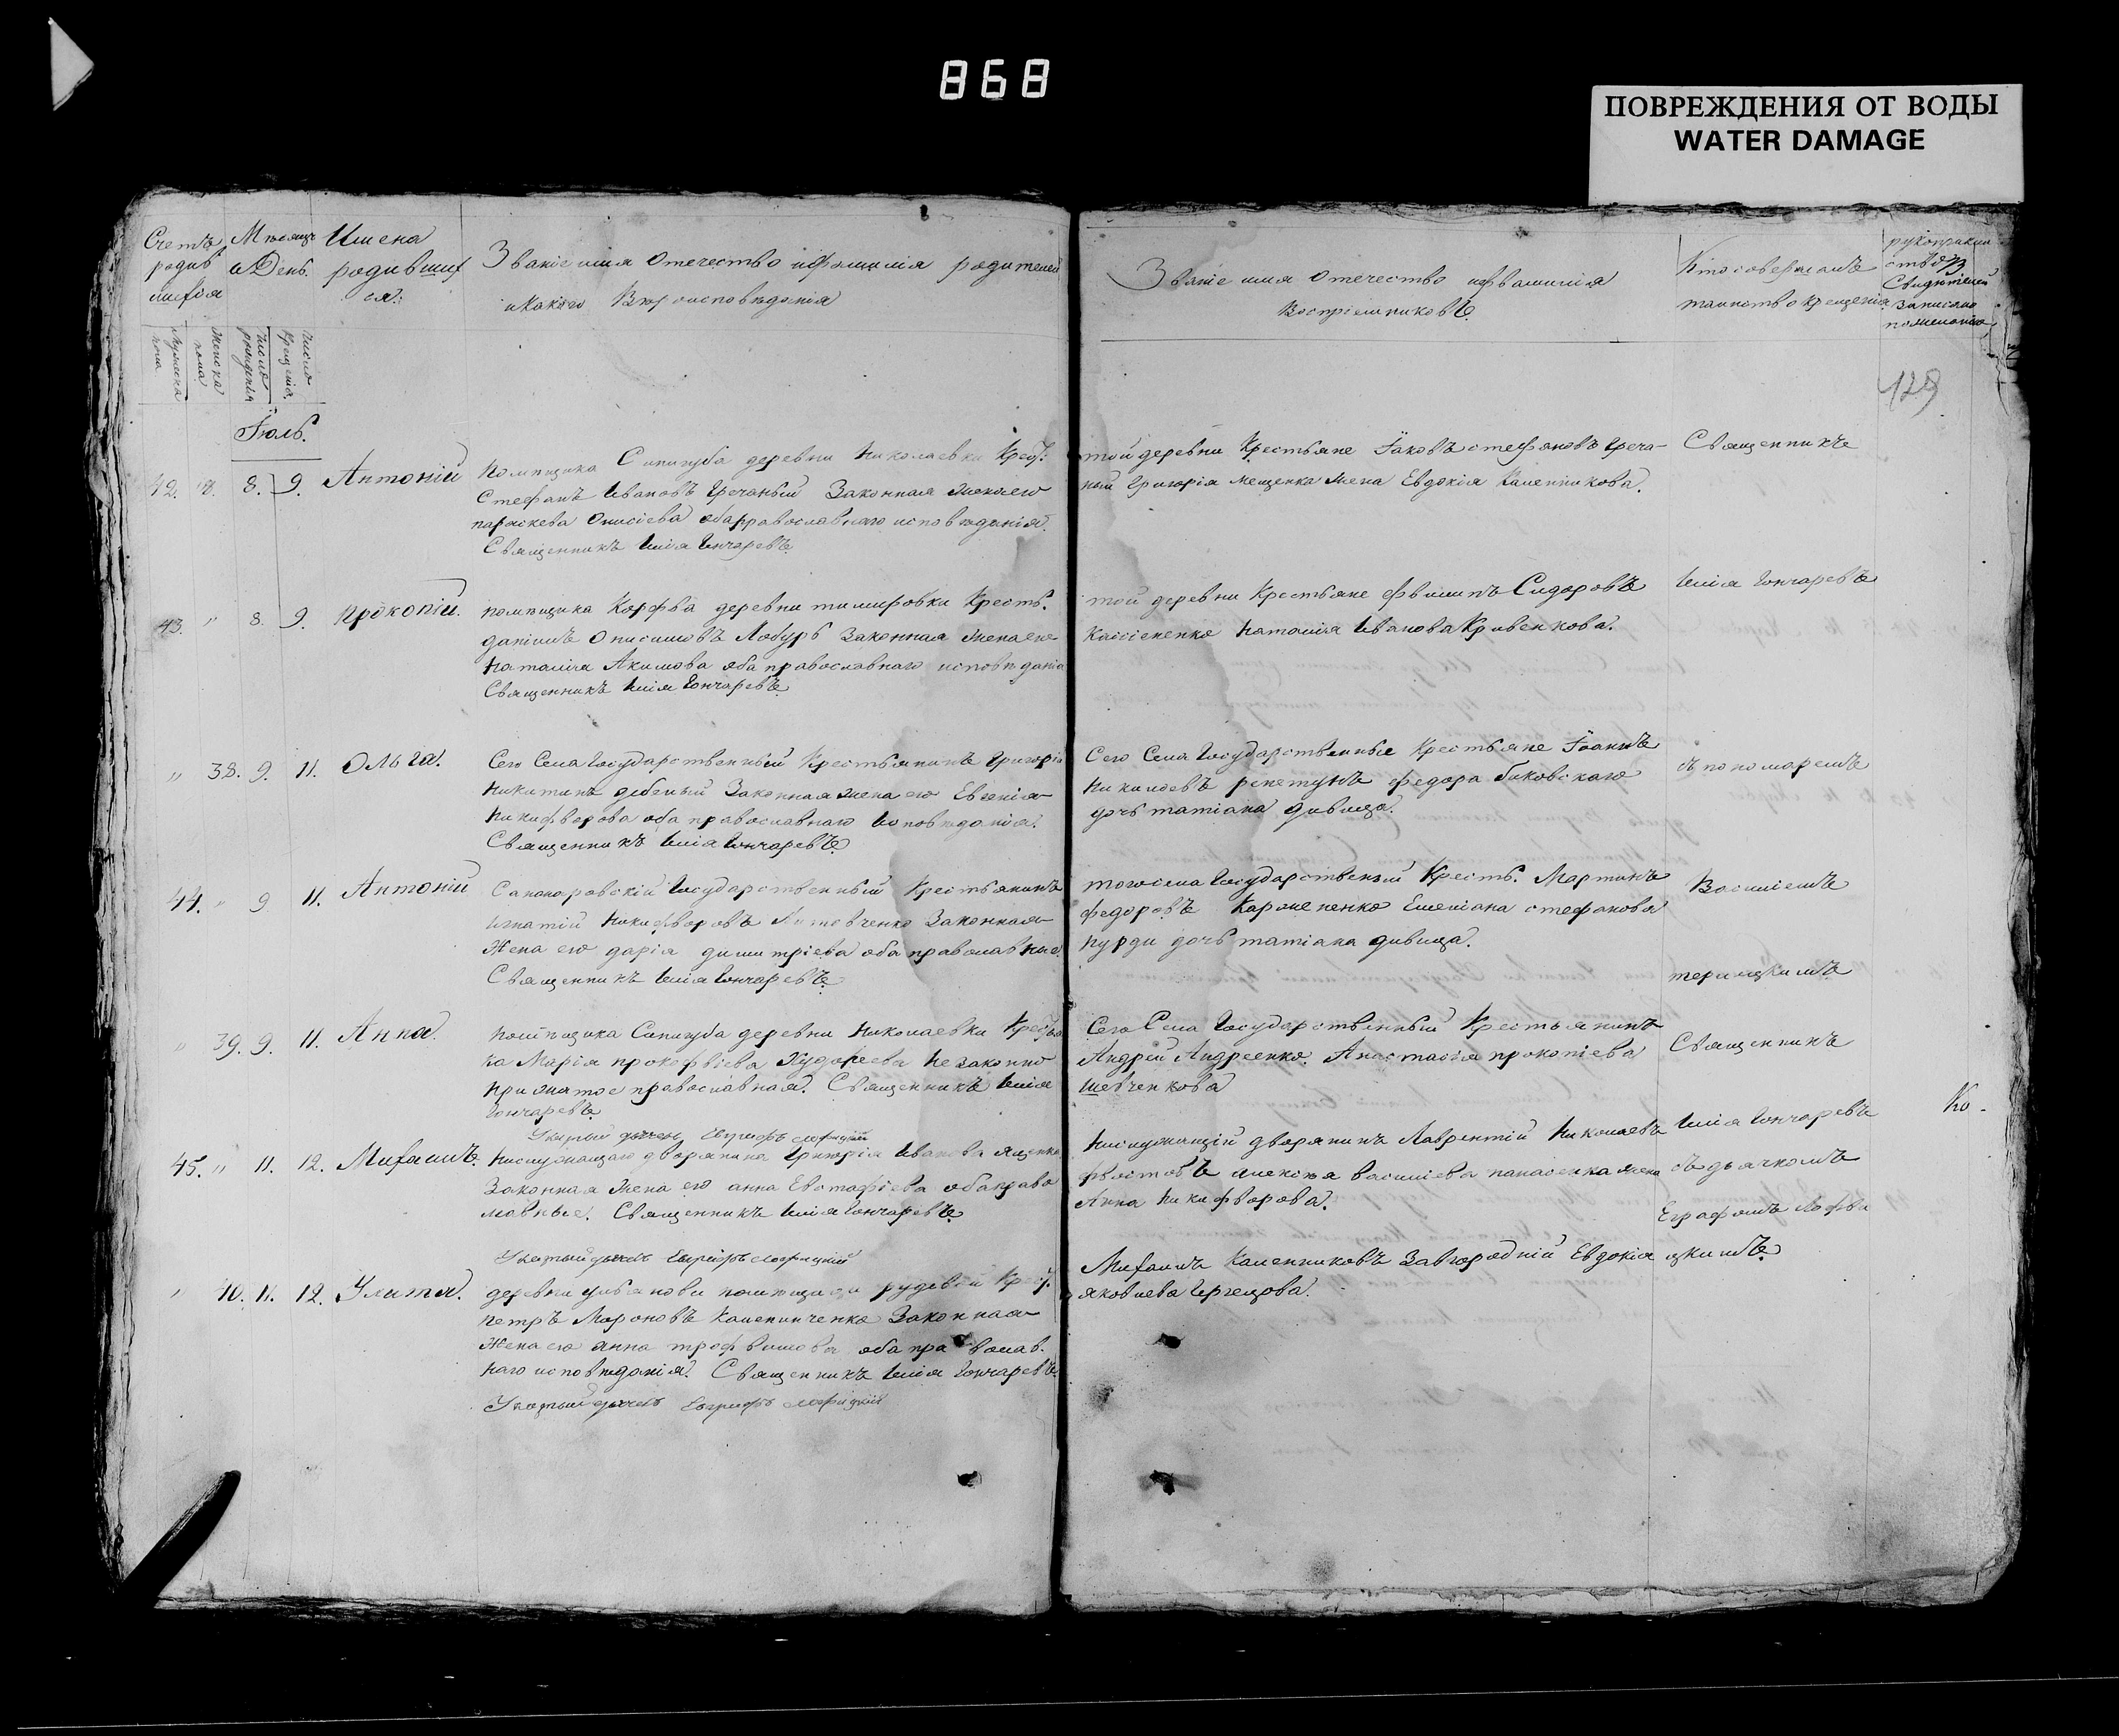 868
ПОВРЕЖДЕНИЯ ОТ ВОДЫ
WATER DAMAGE
Счетъ родив шихся
Мѣсяцъ и День.
Имена родившихся.
Званіе имя Отечество и фамилія родителей
и какого Вѣроисповѣданія
Званіе имя Отечество и фамилія
Воспріемниковъ.
Кто совершалъ
таинство крещенія
рукоприкла
ство
Свидѣтелей
записано
по желанію
Мужеска пола
Женска пола
Число рожденія
Число крещенія
129
Іюль.
42. 8. 9. Антоній
Помѣщика деревни Николаевки Крест:
Стефанъ Ивановъ Гречаный Законная жена его
параскева Онисіева оба православнаго исповѣданія.
Священникъ Илія Гончаревъ.
той деревни Крестьяне Іаковъ стефановъ Греча-
ный Григорія Мещенка жена Евдокія Каленникова.
Священникъ
43. " 8. 9. Прокопій.
помѣщика Корфа деревни тимировки Кресть.
даніилъ Онисимовъ Законная жена его
Наталія Акимова оба православнаго исповѣданія
Священникъ Илія Гончаревъ.
той деревни Крестьяне филипъ Сидоровъ
Наталія Иванова Кривенкова.
Илія Гончаревъ
" 38. 9. 11. Ольга.
Сего Села Государственный Крестьянинъ Григорій
Никитинъ Законная жена его Евгенія
Никифорова оба православнаго исповѣданія.
Священникъ Илія Гончаревъ.
Сего Села Государственные Крестьяне Іоаннъ
репетунъ федора биковскаго
дочь татіана дивица.
съ пономаремъ
44. " 9 11. Антоній
Государственный Крестьянинъ
игнатій Никифоровъ Литовченко Законная
Жена его дарія димитріева оба православные.
Священникъ Илія Гончаревъ.
того села Государственый Кресть. Мартинъ
федоровъ Емеліана стефанова
пурди дочь татіана дивица.
Василіемъ
" 39. 9. 11. Анна.
помѣщика деревни Николаевки Крестья
ка Марія прокофіева незаконно
прижитое православная. Священникъ Илія
Гончаревъ.
Сего Села Государственный Крестьянинъ
Андрей Андреенко. Анастасія прокопіева
шевченкова
Священникъ
Ко-
45. " 11. 12. Михаилъ.
Неслужащаго дворянина Григорія Иванова яценко
Законная жена его анна Евстафіева оба право
славные. Священникъ Илія Гончаревъ.
Неслужащій дворянинъ Лаврентій Николаевъ
алексія василіева панасенка жена
Анна Никифорова.
Илія Гончаревъ
съ дьячкомъ
" 40. 11. 12. Улита.
деревни помѣщицы рудевой Крес.
петръ Мироновъ Каленниченко Законная
Жена его анна трофимова оба православ.
наго исповѣданія. Священникъ Илія Гончаревъ.
Михаилъ Каленниковъ Завгородній Евдокія
яковлева